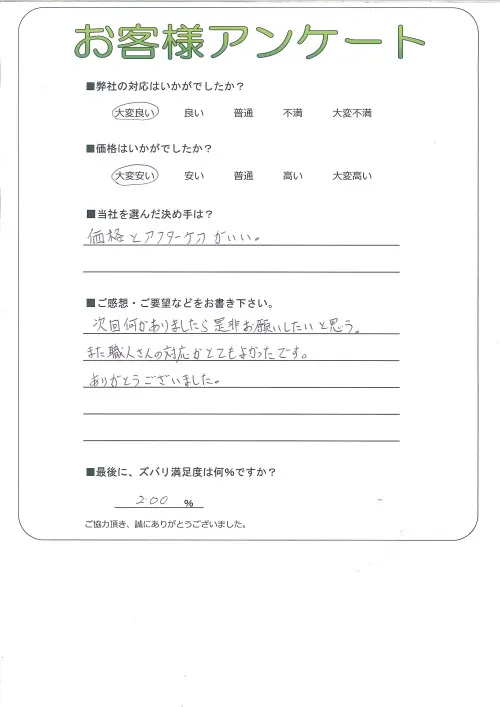 お客様アンケート
■弊社の対応はいかがでしたか？
大変良い 良い 普通 不満 大変不満
■価格はいかがでしたか？
大変安い 安い 普通 高い 大変高い
■当社を選んだ決め手は？
価格とアフターケアがいい。
■ご感想・ご要望などをお書き下さい。
次回何かありましたら是非お願いしたいと思う。
また職人さんの対応がとてもよかったです。
ありがとうございました。
■最後に、ズバリ満足度は何％ですか？
200 %
ご協力頂き、誠にありがとうございました。